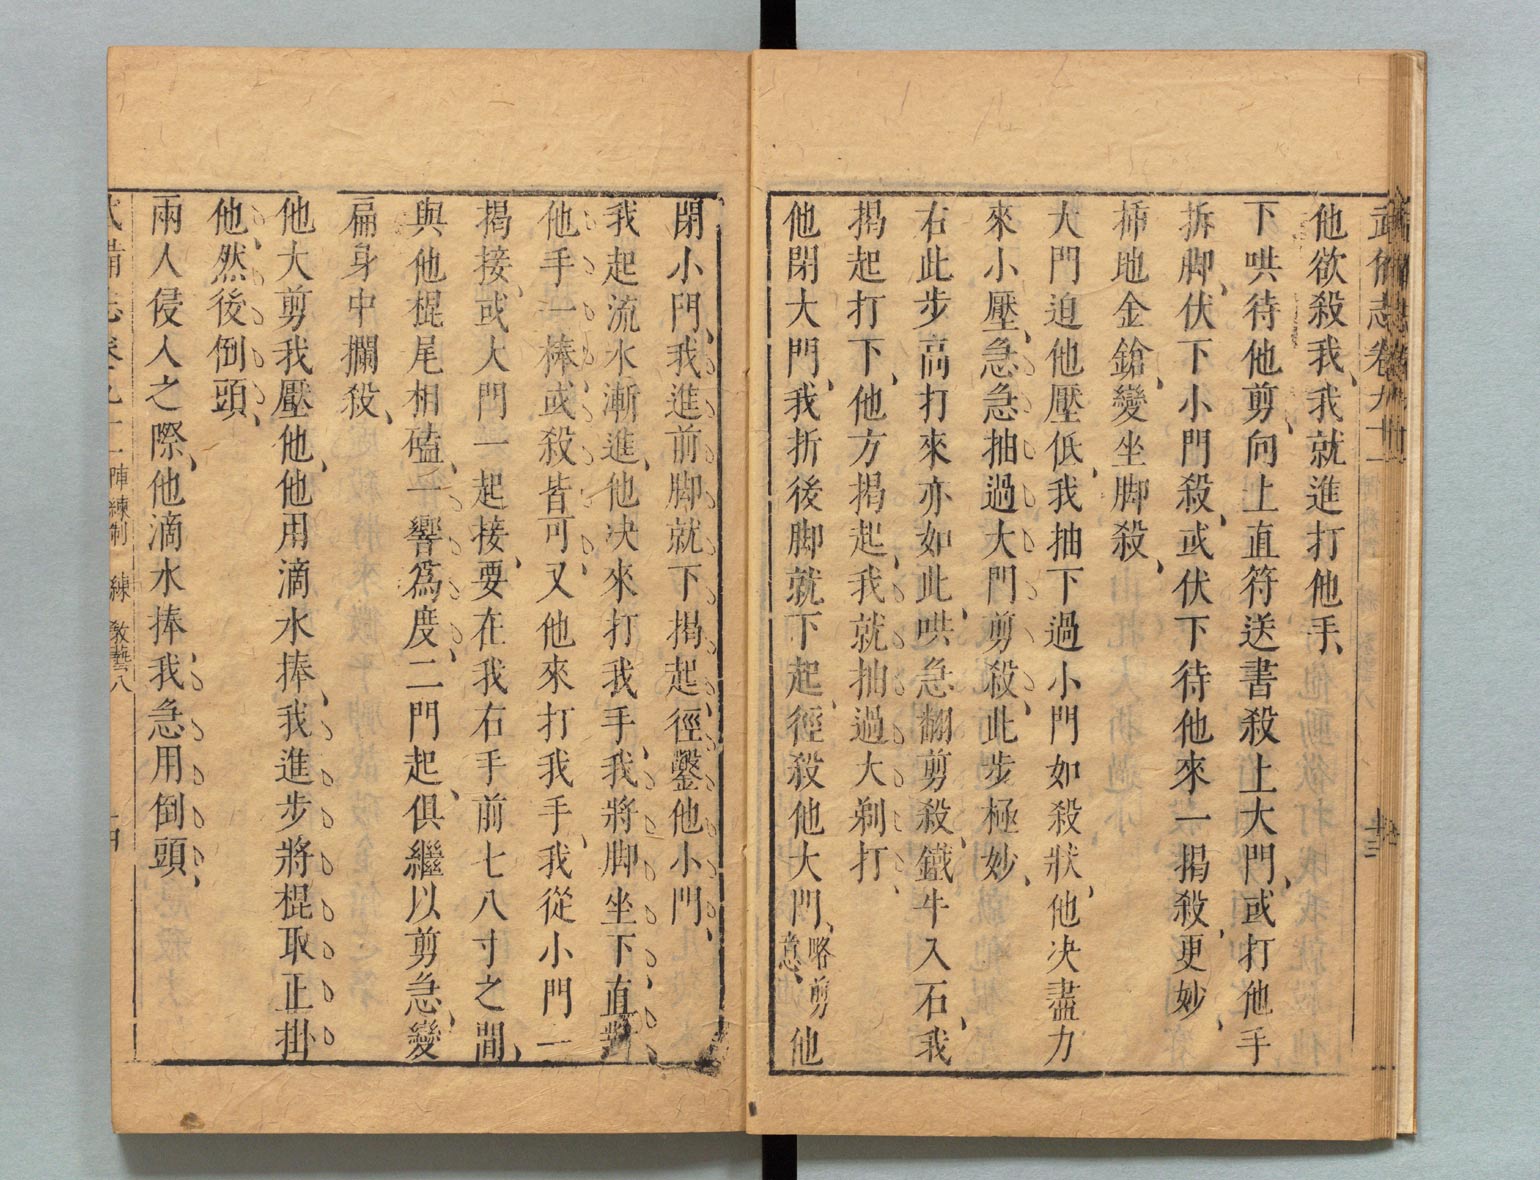 武備志卷九十一
他欲殺我我就進打他手
下哄待他剪向上直符送書殺上大門或打他手
拆脚伏下小門殺或伏下待他來一揭殺更妙
揷地金鎗變坐脚殺
大門迫他壓低我抽下過小門如殺狀他决盡力
來小壓急急抽過大門剪殺此步極妙
右此步高打來亦如此哄急翻剪殺鐵牛入石我
揭起打下他方揭起我就抽過大剃打
他閉大門我折後脚就下起徑殺他大門略剪意他
閉小門我進前脚就下揭起徑鑿他小門
我起流水漸進他决來打我手我將脚坐下直對
他手一棒或殺皆可又他來打我手我從小門一
揭接或大門一起接要在我右手前七八寸之間
與他棍尾相磕一響爲度二門起俱繼以剪急變
扁身中攔殺
他大剪我壓他他用滴水捧我進步將棍取正掛
他然後倒頭
兩人侵人之際他滴水捧我急用倒頭
武備志卷九十一 陣練制 練 教藝八